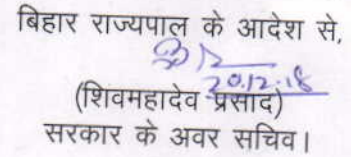 बिहार राज्यपाल के आदेश से,
20.12.18
(शिवमहादेव प्रसाद)
सरकार के अवर सचिव।